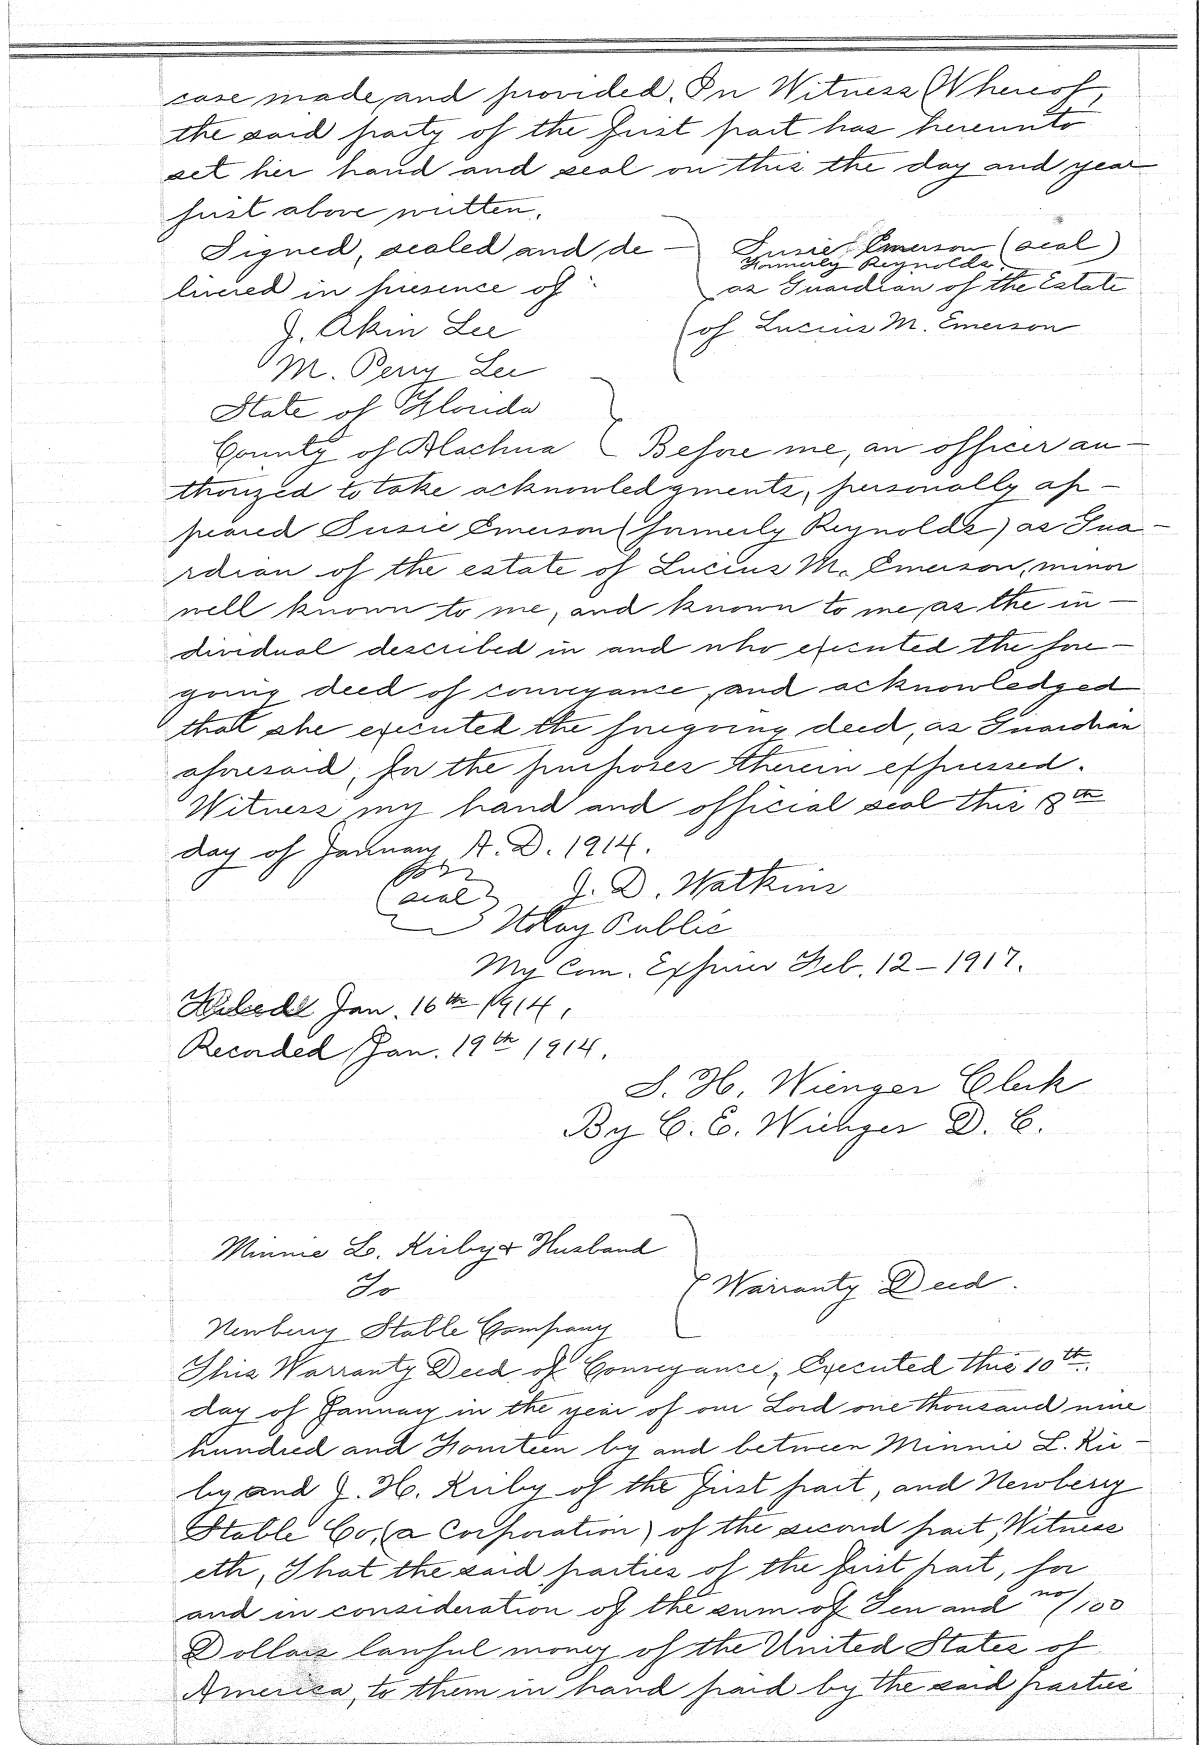 case made, and provided. In Witness Whereof,
the said party of the first part has hereunto
set her hand and seal on this the day and year
first above written.
Signed, sealed and de-
livered in presence of
Susie Emerson (seal)
Formerly Reynolds.
as Guardian of the Estate
of Lucius M. Emerson
J. Akin Lee
M. Perry Lee
State of Florida
County of Alachua Before me, an officer au-
thorized to take acknowledgments, personally ap-
peared Susie Emerson (formerly Reynolds) as Gua-
rdian of the estate of Lucius M. Emerson, minor
well known to me, and known to me, as the in-
dividual described in and who executed the fore-
going deed of conveyance, and acknowledged
that she executed the foregoing deed, as Guardian
aforesaid, for the purposes therein expressed.
Witness my hand and official seal this 8th
day of January A. D. 1914.
(seal) J. D. Watkins
Notay Public
My Com. Expires Feb. 12-1917.
Filed Jan. 16th 1914.
Recorded Jan. 19th 1914.
S. H. Wienges Clerk
By C. E. Wienges D. C.
Minnie L. Kirby & Husband
To
Warranty Deed.
Newberry Stable Company
This Warranty Deed of Conveyance, Executed this 10th.
day of January in the year of our Lord one thousand nine
hundred and Fourteen by and between Minnie L. Kir-
by and J. H. Kirby of the first part, and Newberry
Stable Co, (a Corporation) of the second part, Witness
eth, That the said parties of the first part, for
and in consideration of the sum of Ten and no/100
Dollars lawful money of the United States of
America, to them in hand paid by the said parties